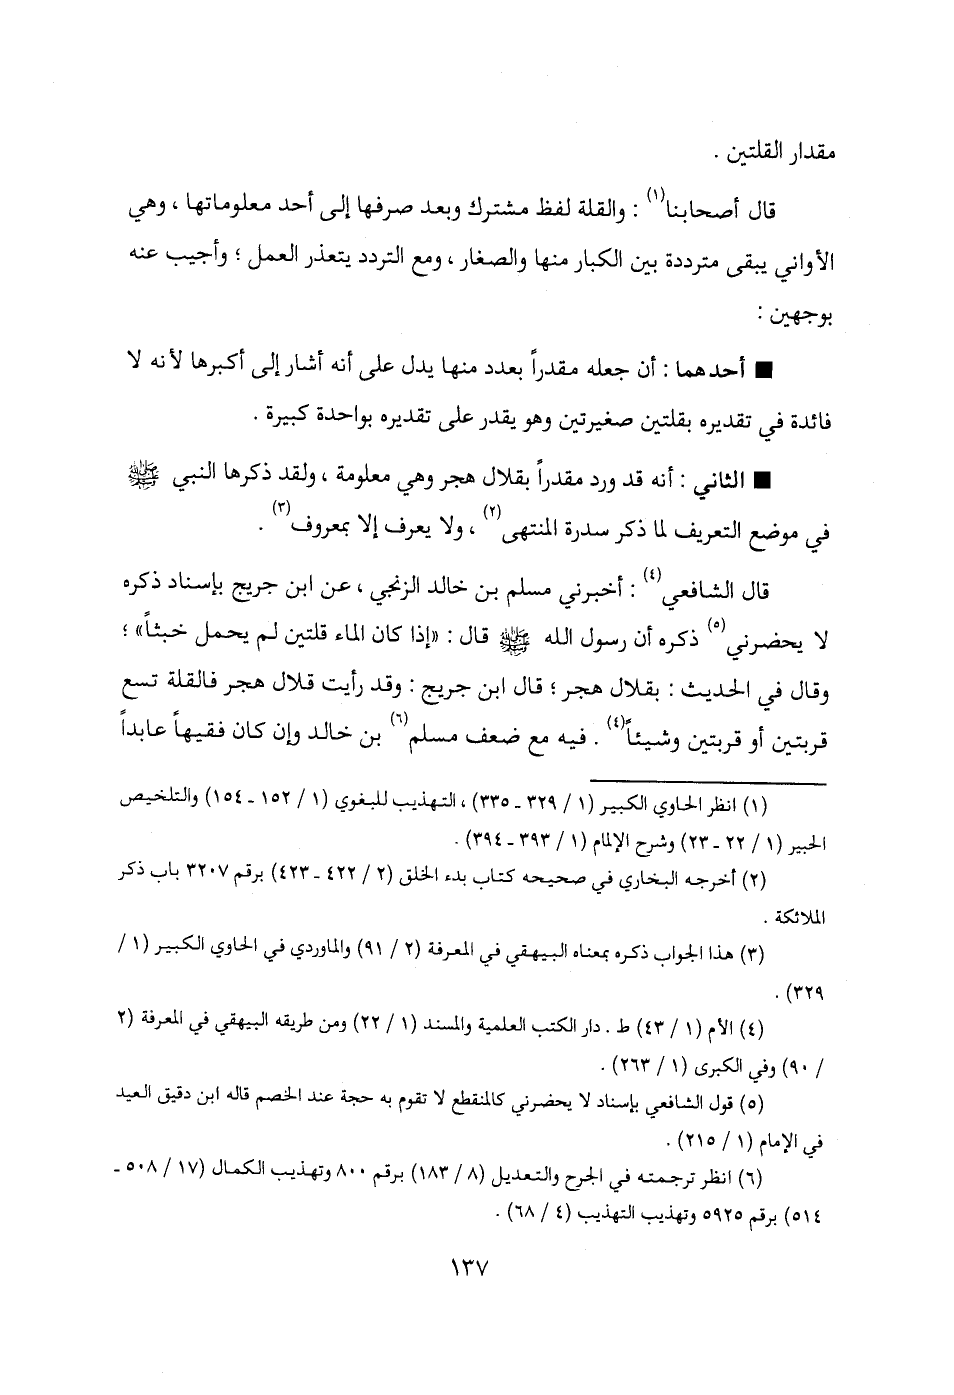 مقدار القلتين .
قال أصحابنا(١) : والقلة لفظ مشترك وبعد صرفها إلى أحد معلوماتها ، وهي
الأواني يبقى مترددة بين الكبار منها والصغار ، ومع التردد يتعذر العمل ؛ وأجيب عنه
بوجهين :
■ أحدهما : أن جعله مقدراً بعدد منها يدل على أنه أشار إلى أكبرها لأنه لا
فائدة في تقديره بقلتين صغيرتين وهو يقدر على تقديره بواحدة كبيرة .
■ الثاني : أنه قد ورد مقدراً بقلال هجر وهي معلومة ، ولقد ذكرها النبي ﷺ
في موضع التعريف لما ذكر سدرة المنتهى(٢) ، ولا يعرف إلا بمعروف(٣) .
قال الشافعي(٤) : أخبرني مسلم بن خالد الزنجي ، عن ابن جريج بإسناد ذكره
لا يحضرني(٥) ذكره أن رسول الله ﷺ قال : «إذا كان الماء قلتين لم يحمل خبثاً» ؛
وقال في الحديث : بقلال هجر ؛ قال ابن جريج : وقد رأيت قلال هجر فالقلة تسع
قربتين أو قربتين وشيئاً(٤) . فيه مع ضعف مسلم(٦) بن خالد وإن كان فقيهاً عابداً
(١) انظر الحاوي الكبير (١ / ٣٢٩ ـ ٣٣٥) ، التهذيب للبغوي (١ / ١٥٢ ـ ١٥٤) والتلخيص
الحبير (١ / ٢٢ ـ ٢٣) وشرح الإلمام (١ / ٣٩٣ ـ ٣٩٤) .
(٢) أخرجه البخاري في صحيحه كتاب بدء الخلق (٢ / ٤٢٢ ـ ٤٢٣) برقم ٣٢٠٧ باب ذكر
الملائكة .
(٣) هذا الجواب ذكره بمعناه البيهقي في المعرفة (٢ / ٩١) والماوردي في الحاوي الكبير (١ /
٣٢٩) .
(٤) الأم (١ / ٤٣) ط . دار الكتب العلمية والمسند (١ / ٢٢) ومن طريقه البيهقي في المعرفة (٢
/ ٩٠) وفي الكبرى (١ / ٢٦٣) .
(٥) قول الشافعي بإسناد لا يحضرني كالمنقطع لا تقوم به حجة عند الخصم قاله ابن دقيق العيد
في الإمام (١ / ٢١٥) .
(٦) انظر ترجمته في الجرح والتعديل (٨ / ١٨٣) برقم ٨٠٠ وتهذيب الكمال (١٧ / ٥٠٨ ـ
٥١٤) برقم ٥٩٢٥ وتهذيب التهذيب (٤ / ٦٨) .
١٣٧